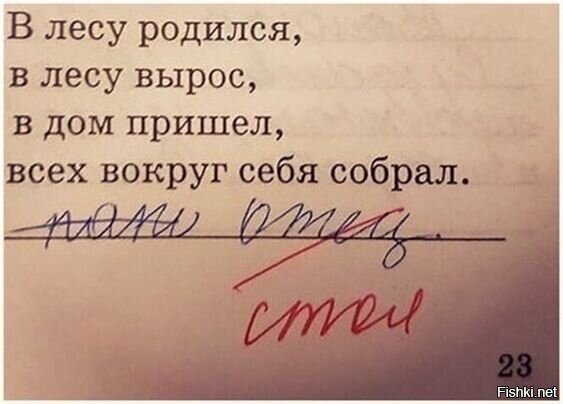 В лесу родился,
в лесу вырос,
в дом пришел,
всех вокруг себя собрал.
папа отец.
стол
23
Fishki.net